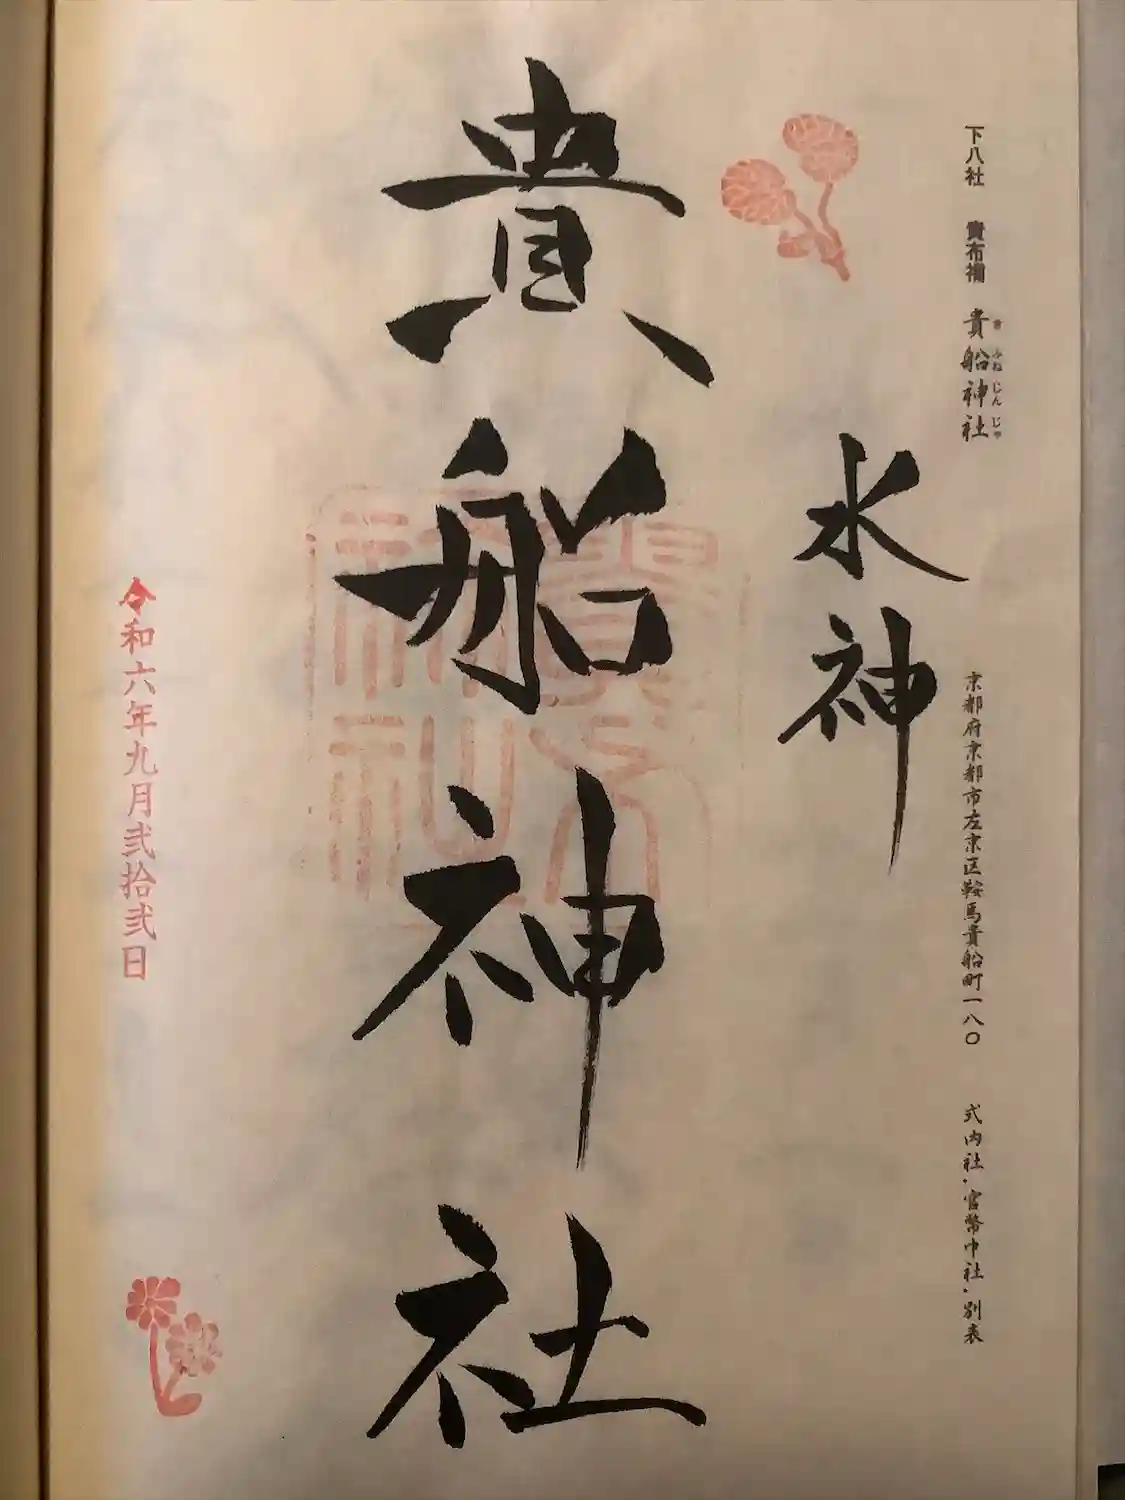 下八社 貴布禰 貴船神社
きふねじんじゃ
京都府京都市左京区鞍馬貴船町一八〇
式内社・官幣中社・別表
水神
貴船神社
令和六年九月弐拾弐日